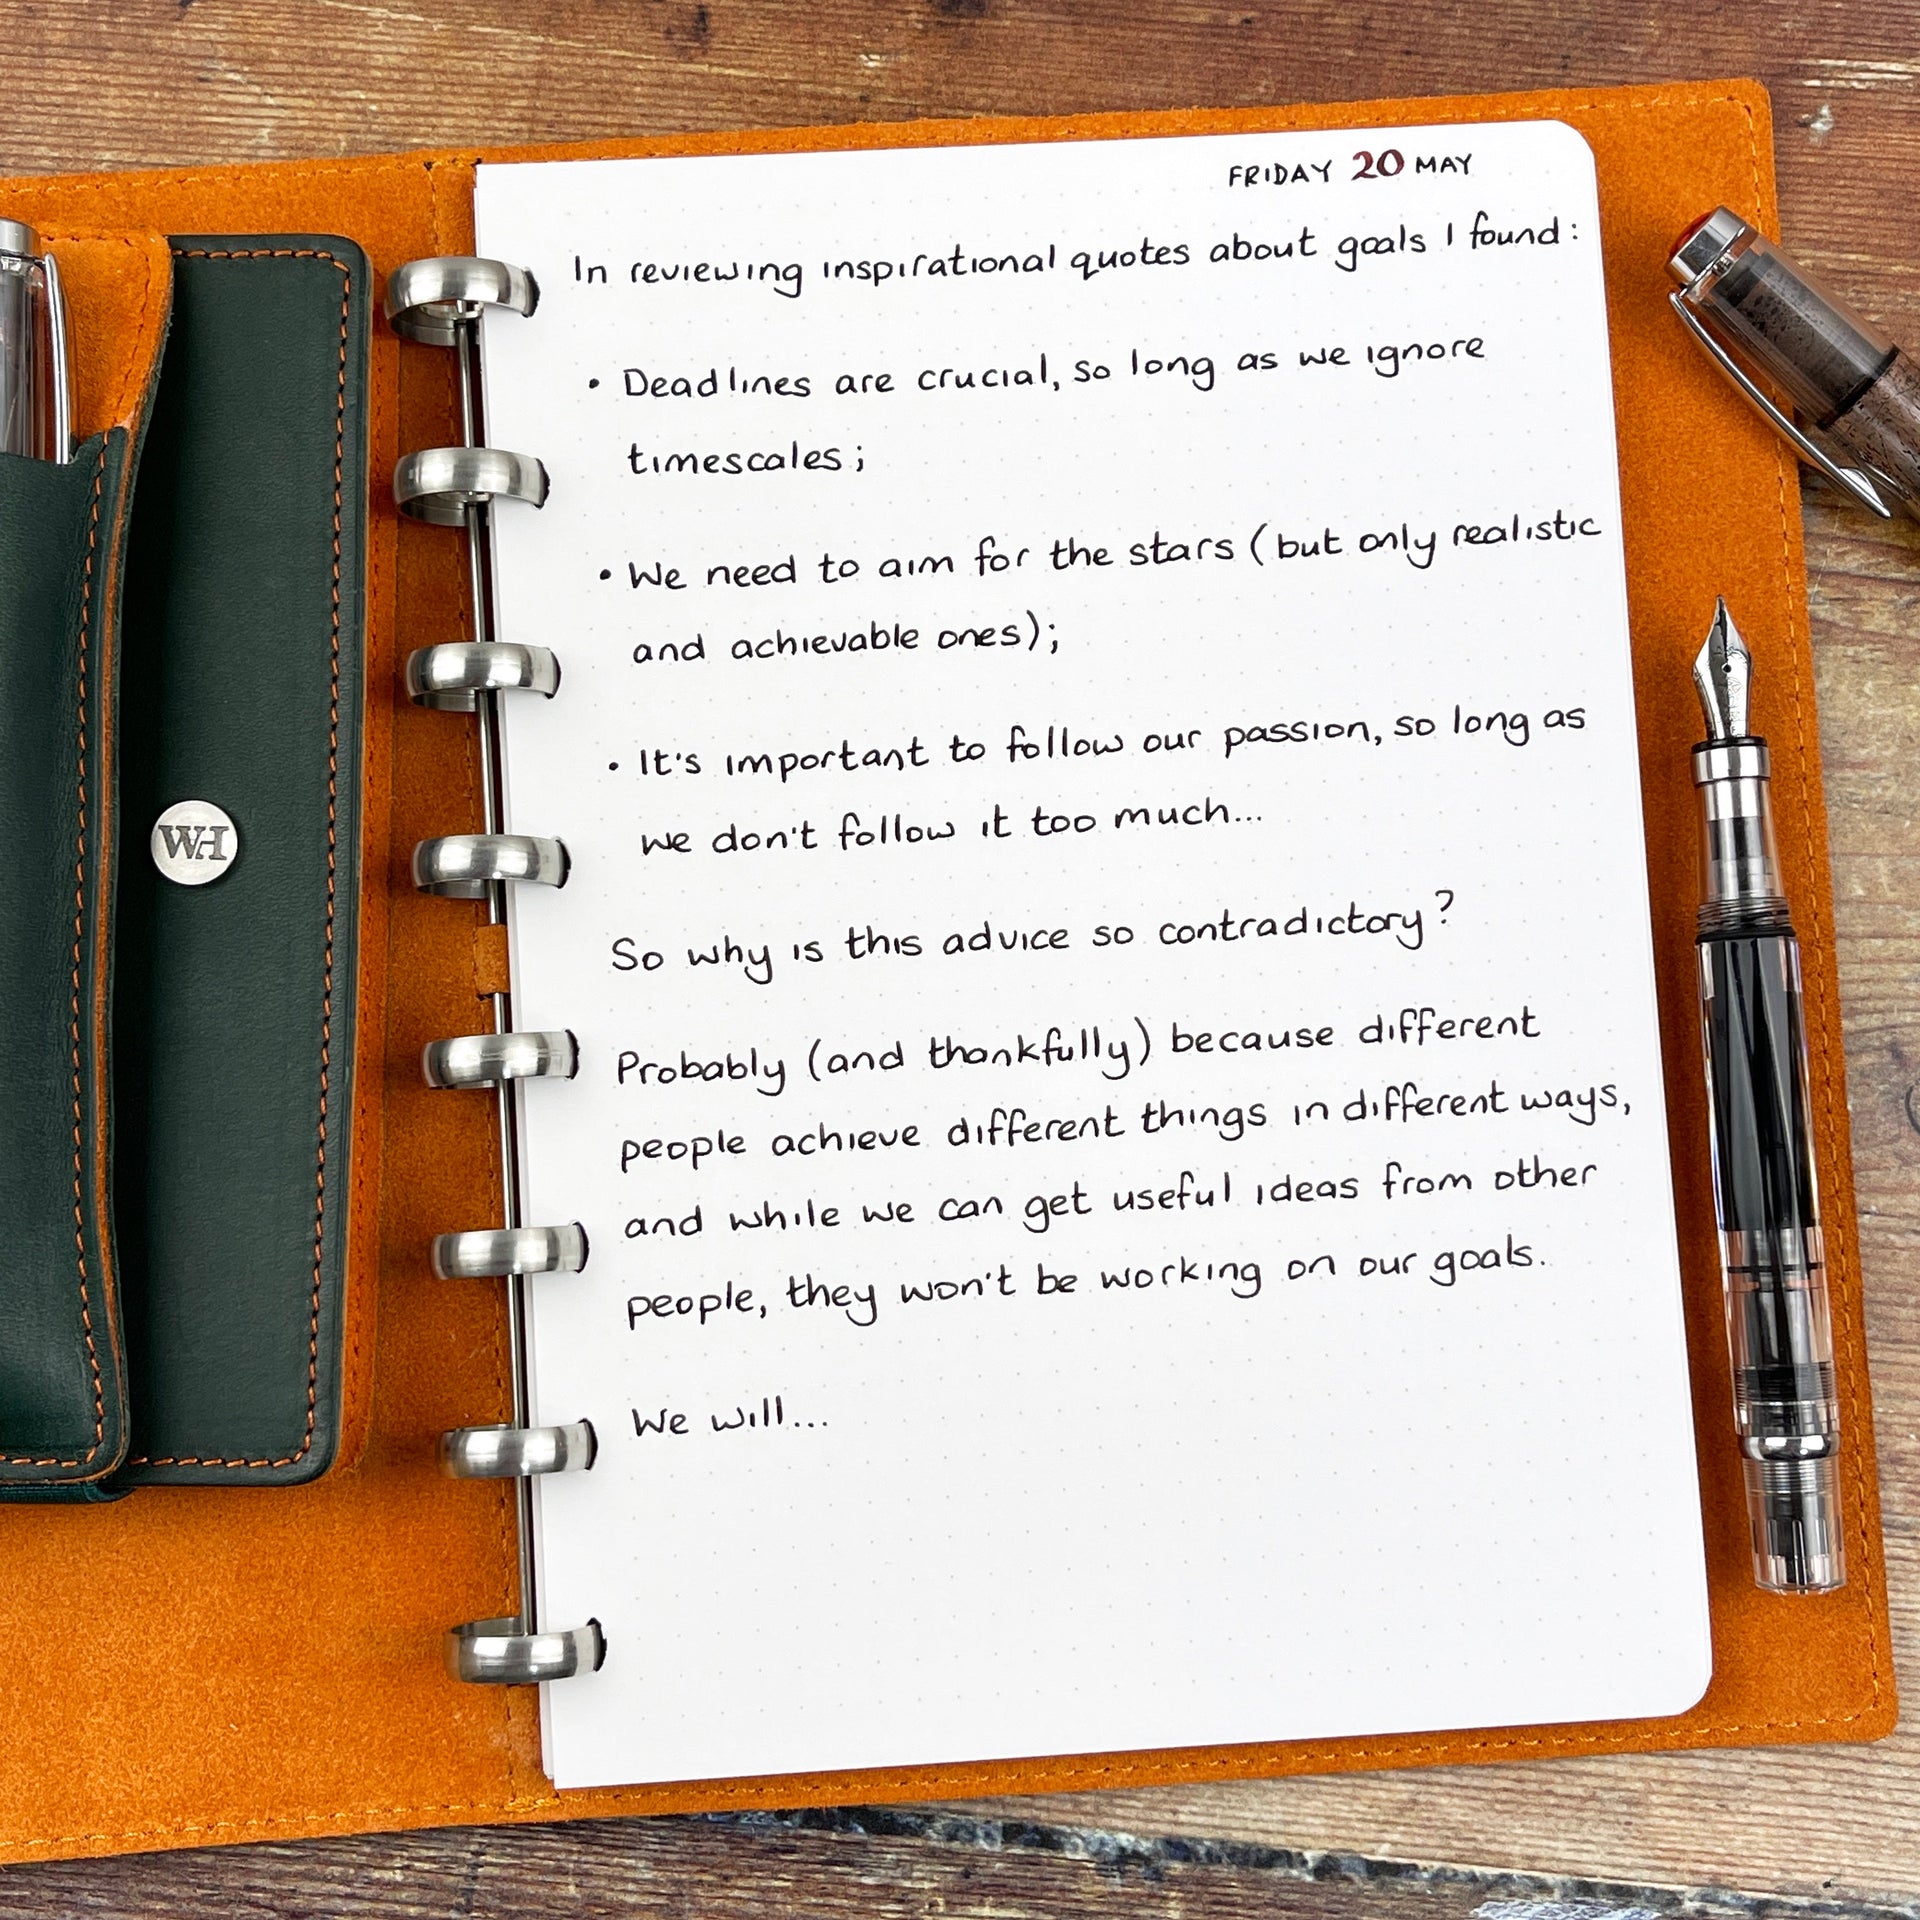 FRIDAY 20 MAY
In reviewing inspirational quotes about goals I found:
• Deadlines are crucial, so long as we ignore
timescales;
• We need to aim for the stars (but only realistic
and achievable ones);
• It's important to follow our passion, so long as
we don't follow it too much...
So why is this advice so contradictory?
Probably (and thankfully) because different
people achieve different things in different ways,
and while we can get useful ideas from other
people, they won't be working on our goals.
We will...
WH